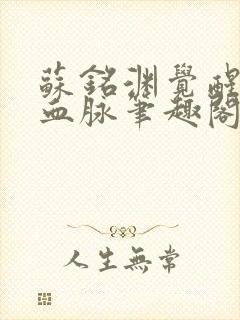 蘇銘淵覺醒
血脉筆趣閣
人生無常